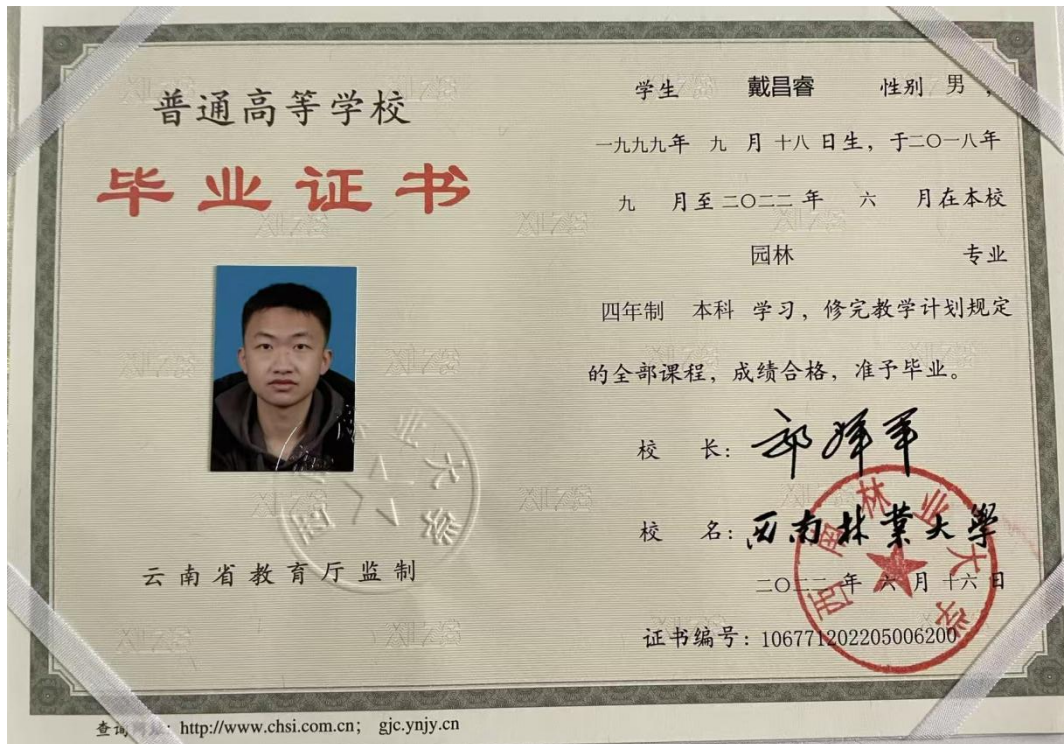 普通高等学校
毕业证书
云南省教育厅监制
学生 戴昌睿 性别 男 ，
一九九九年 九 月 十八 日生，于二〇一八年
九 月至二〇二二年 六 月在本校
园林 专业
四年制 本科 学习，修完教学计划规定
的全部课程，成绩合格，准予毕业。
校 长：
校 名：西南林业大学
西南林业大学
二〇二二年 六 月 十六 日
证书编号：106771202205006200
查询 ：http://www.chsi.com.cn； gjc.ynjy.cn